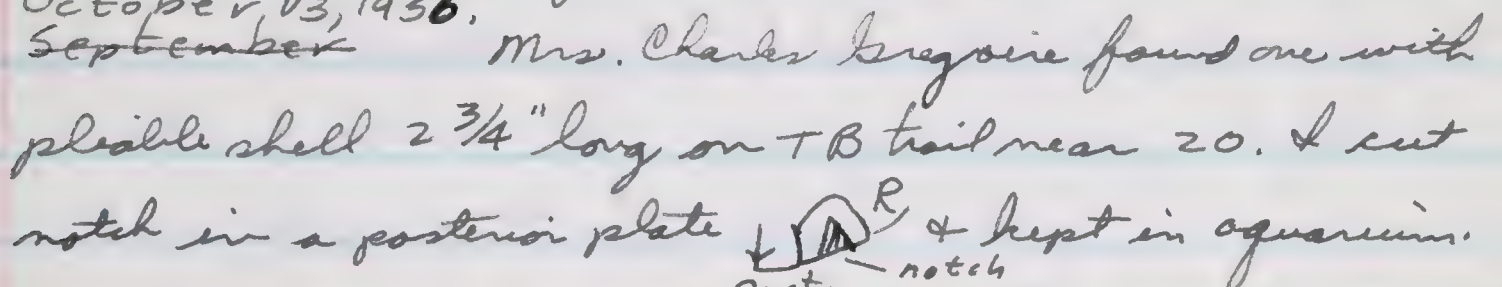 October, 03, 1956.
September Mrs. Charles Gregoire found one with
pliable shell 2 3/4" long on TB trail near 20. I cut
notch in a posterior plate R & kept in aquarium.
notch